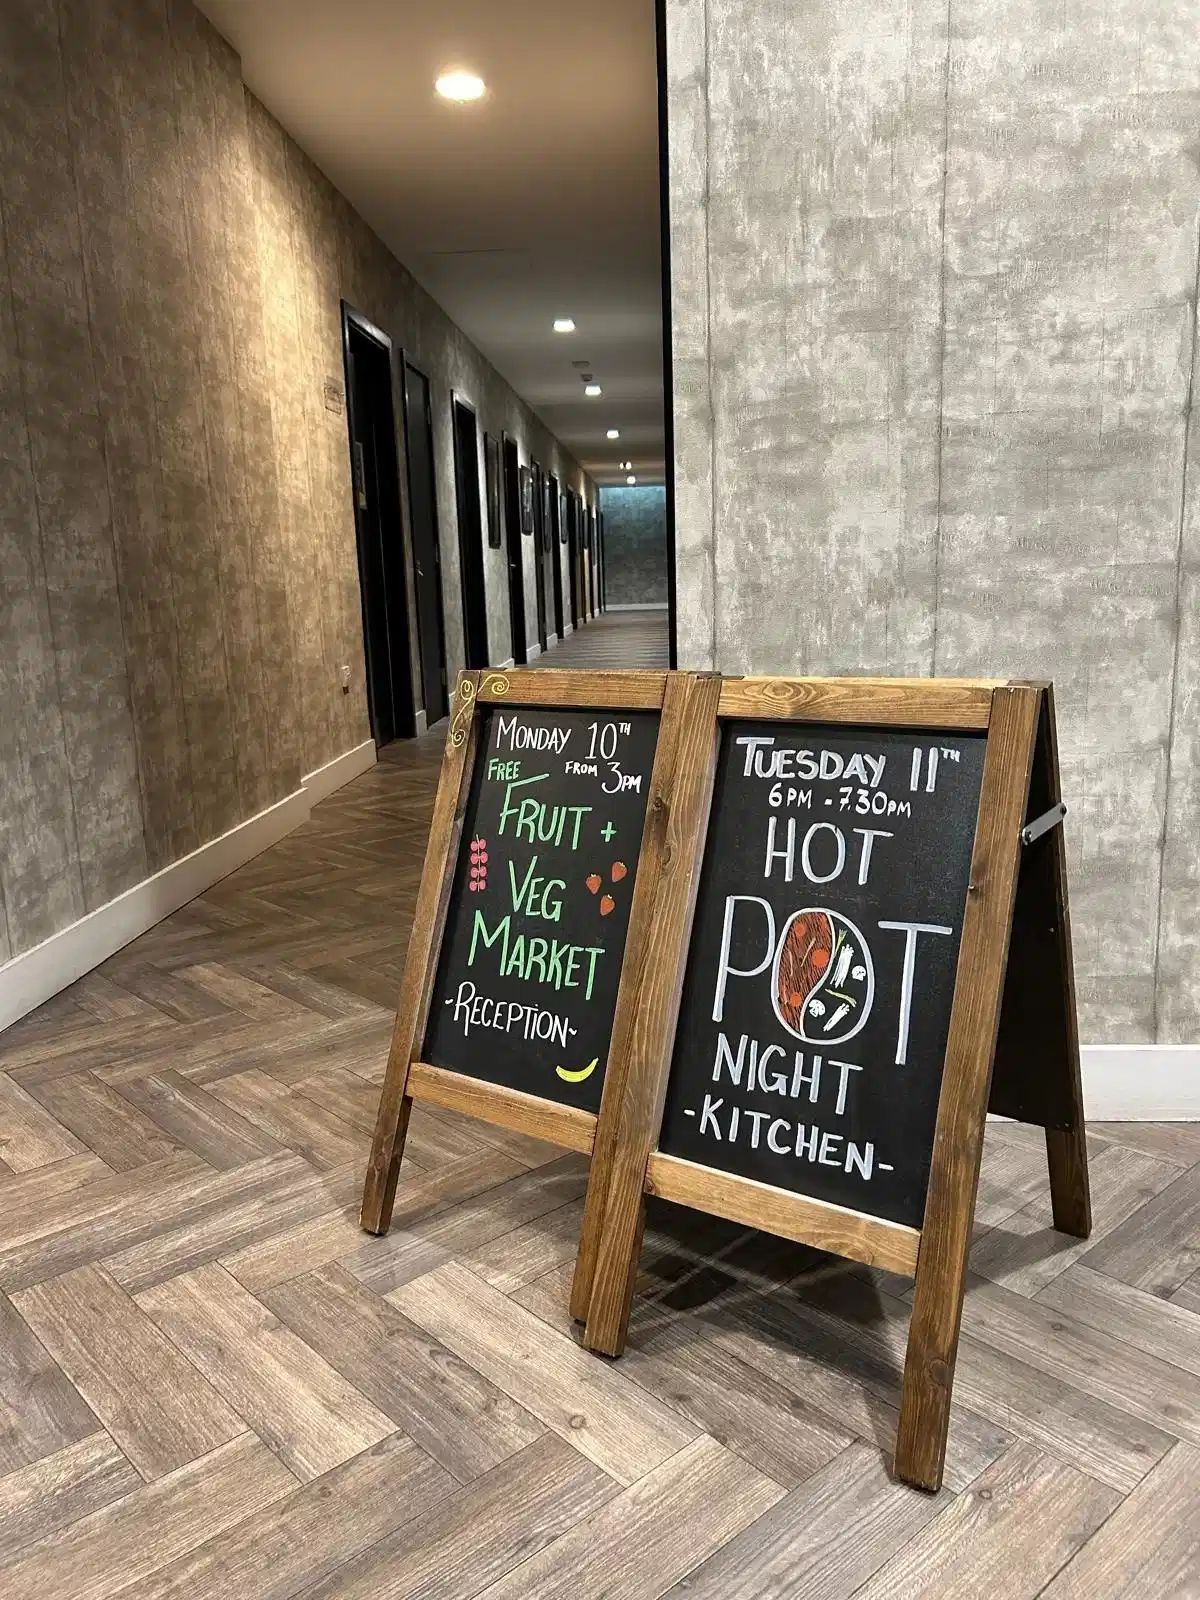 MONDAY 10TH
FREE FROM 3PM
FRUIT +
VEG
MARKET
-RECEPTION~
TUESDAY 11TH
6PM - 7.30PM
HOT
POT
NIGHT
-KITCHEN-